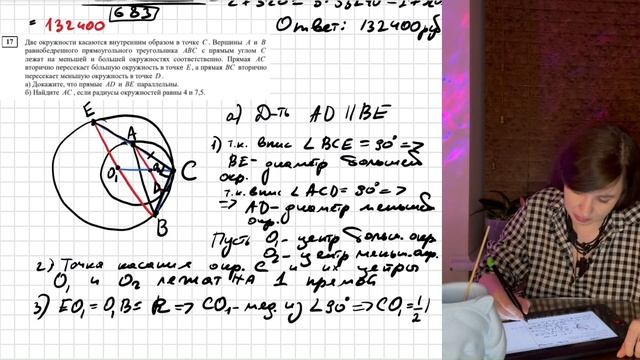 683
= 132400
Ответ: 132400 руб
17
Две окружности касаются внутренним образом в точке C. Вершины A и B
равнобедренного прямоугольного треугольника ABC с прямым углом C
лежат на меньшей и большей окружностях соответственно. Прямая AC
вторично пересекает большую окружность в точке E, а прямая BC вторично
пересекает меньшую окружность в точке D.
а) Докажите, что прямые AD и BE параллельны.
б) Найдите AC, если радиусы окружностей равны 4 и 7,5.
E
A
O₁
O₂
C
D
B
а) Д-ть AD || BE
1) т.к. впис ∠BCE = 90° =>
BE - диаметр большей
окр.
т.к. впис ∠ACD = 90° =>
=> AD - диаметр меньшей
окр.
Пусть O₁ - центр больш. окр
O₂ - центр меньш. окр.
2) Точка касания окр. C и их центры
O₁ и O₂ лежат на 1 прямой
3) EO₁ = O₁B = R => CO₁ - мед. из ∠90° => CO₁ = 1/2